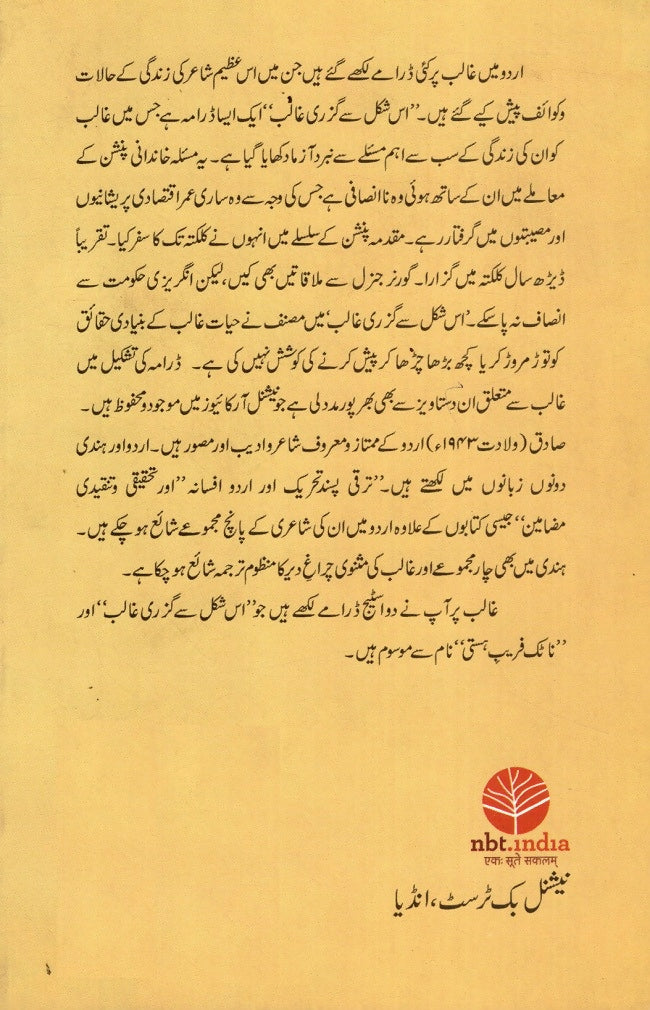 اردو میں غالب پر کئی ڈرامے لکھے گئے ہیں جن میں اس عظیم شاعر کی زندگی کے حالات
وکوائف پیش کیے گئے ہیں۔ ”اس شکل سے گزری غالب“ ایک ایسا ڈرامہ ہے جس میں غالب
کو ان کی زندگی کے سب سے اہم مسئلے سے نبرد آزما دکھایا گیا ہے۔ یہ مسئلہ خاندانی پنشن کے
معاملے میں ان کے ساتھ ہوئی وہ ناانصافی ہے جس کی وجہ سے وہ ساری عمر اقتصادی پریشانیوں
اور مصیبتوں میں گرفتار رہے۔ مقدمہ پنشن کے سلسلے میں انہوں نے کلکتہ تک کا سفر کیا۔ تقریباً
ڈیڑھ سال کلکتہ میں گزارا۔ گورنر جنرل سے ملاقاتیں بھی کیں، لیکن انگریزی حکومت سے
انصاف نہ پا سکے۔ ’اس شکل سے گزری غالب‘ میں مصنف نے حیات غالب کے بنیادی حقائق
کو توڑ مروڑ کر یا کچھ بڑھا چڑھا کر پیش کرنے کی کوشش نہیں کی ہے۔ ڈرامہ کی تشکیل میں
غالب سے متعلق ان دستاویز سے بھی بھرپور مدد لی ہے جو نیشنل آرکائیوز میں موجود و محفوظ ہیں۔
صادق (ولادت ۱۹۴۳ء) اردو کے ممتاز و معروف شاعر و ادیب اور مصور ہیں۔ اردو اور ہندی
دونوں زبانوں میں لکھتے ہیں۔ ”ترقی پسند تحریک اور اردو افسانہ“ اور ”تحقیقی وتنقیدی
مضامین“ جیسی کتابوں کے علاوہ اردو میں ان کی شاعری کے پانچ مجموعے شائع ہو چکے ہیں۔
ہندی میں بھی چار مجموعے اور غالب کی مثنوی چراغِ دیر کا منظوم ترجمہ شائع ہو چکا ہے۔
غالب پر آپ نے دو اسٹیج ڈرامے لکھے ہیں جو ”اس شکل سے گزری غالب“ اور
”ناٹک فریبِ ہستی“ نام سے موسوم ہیں۔
nbt.india
एकः सूते सकलम्
نیشنل بک ٹرسٹ، انڈیا